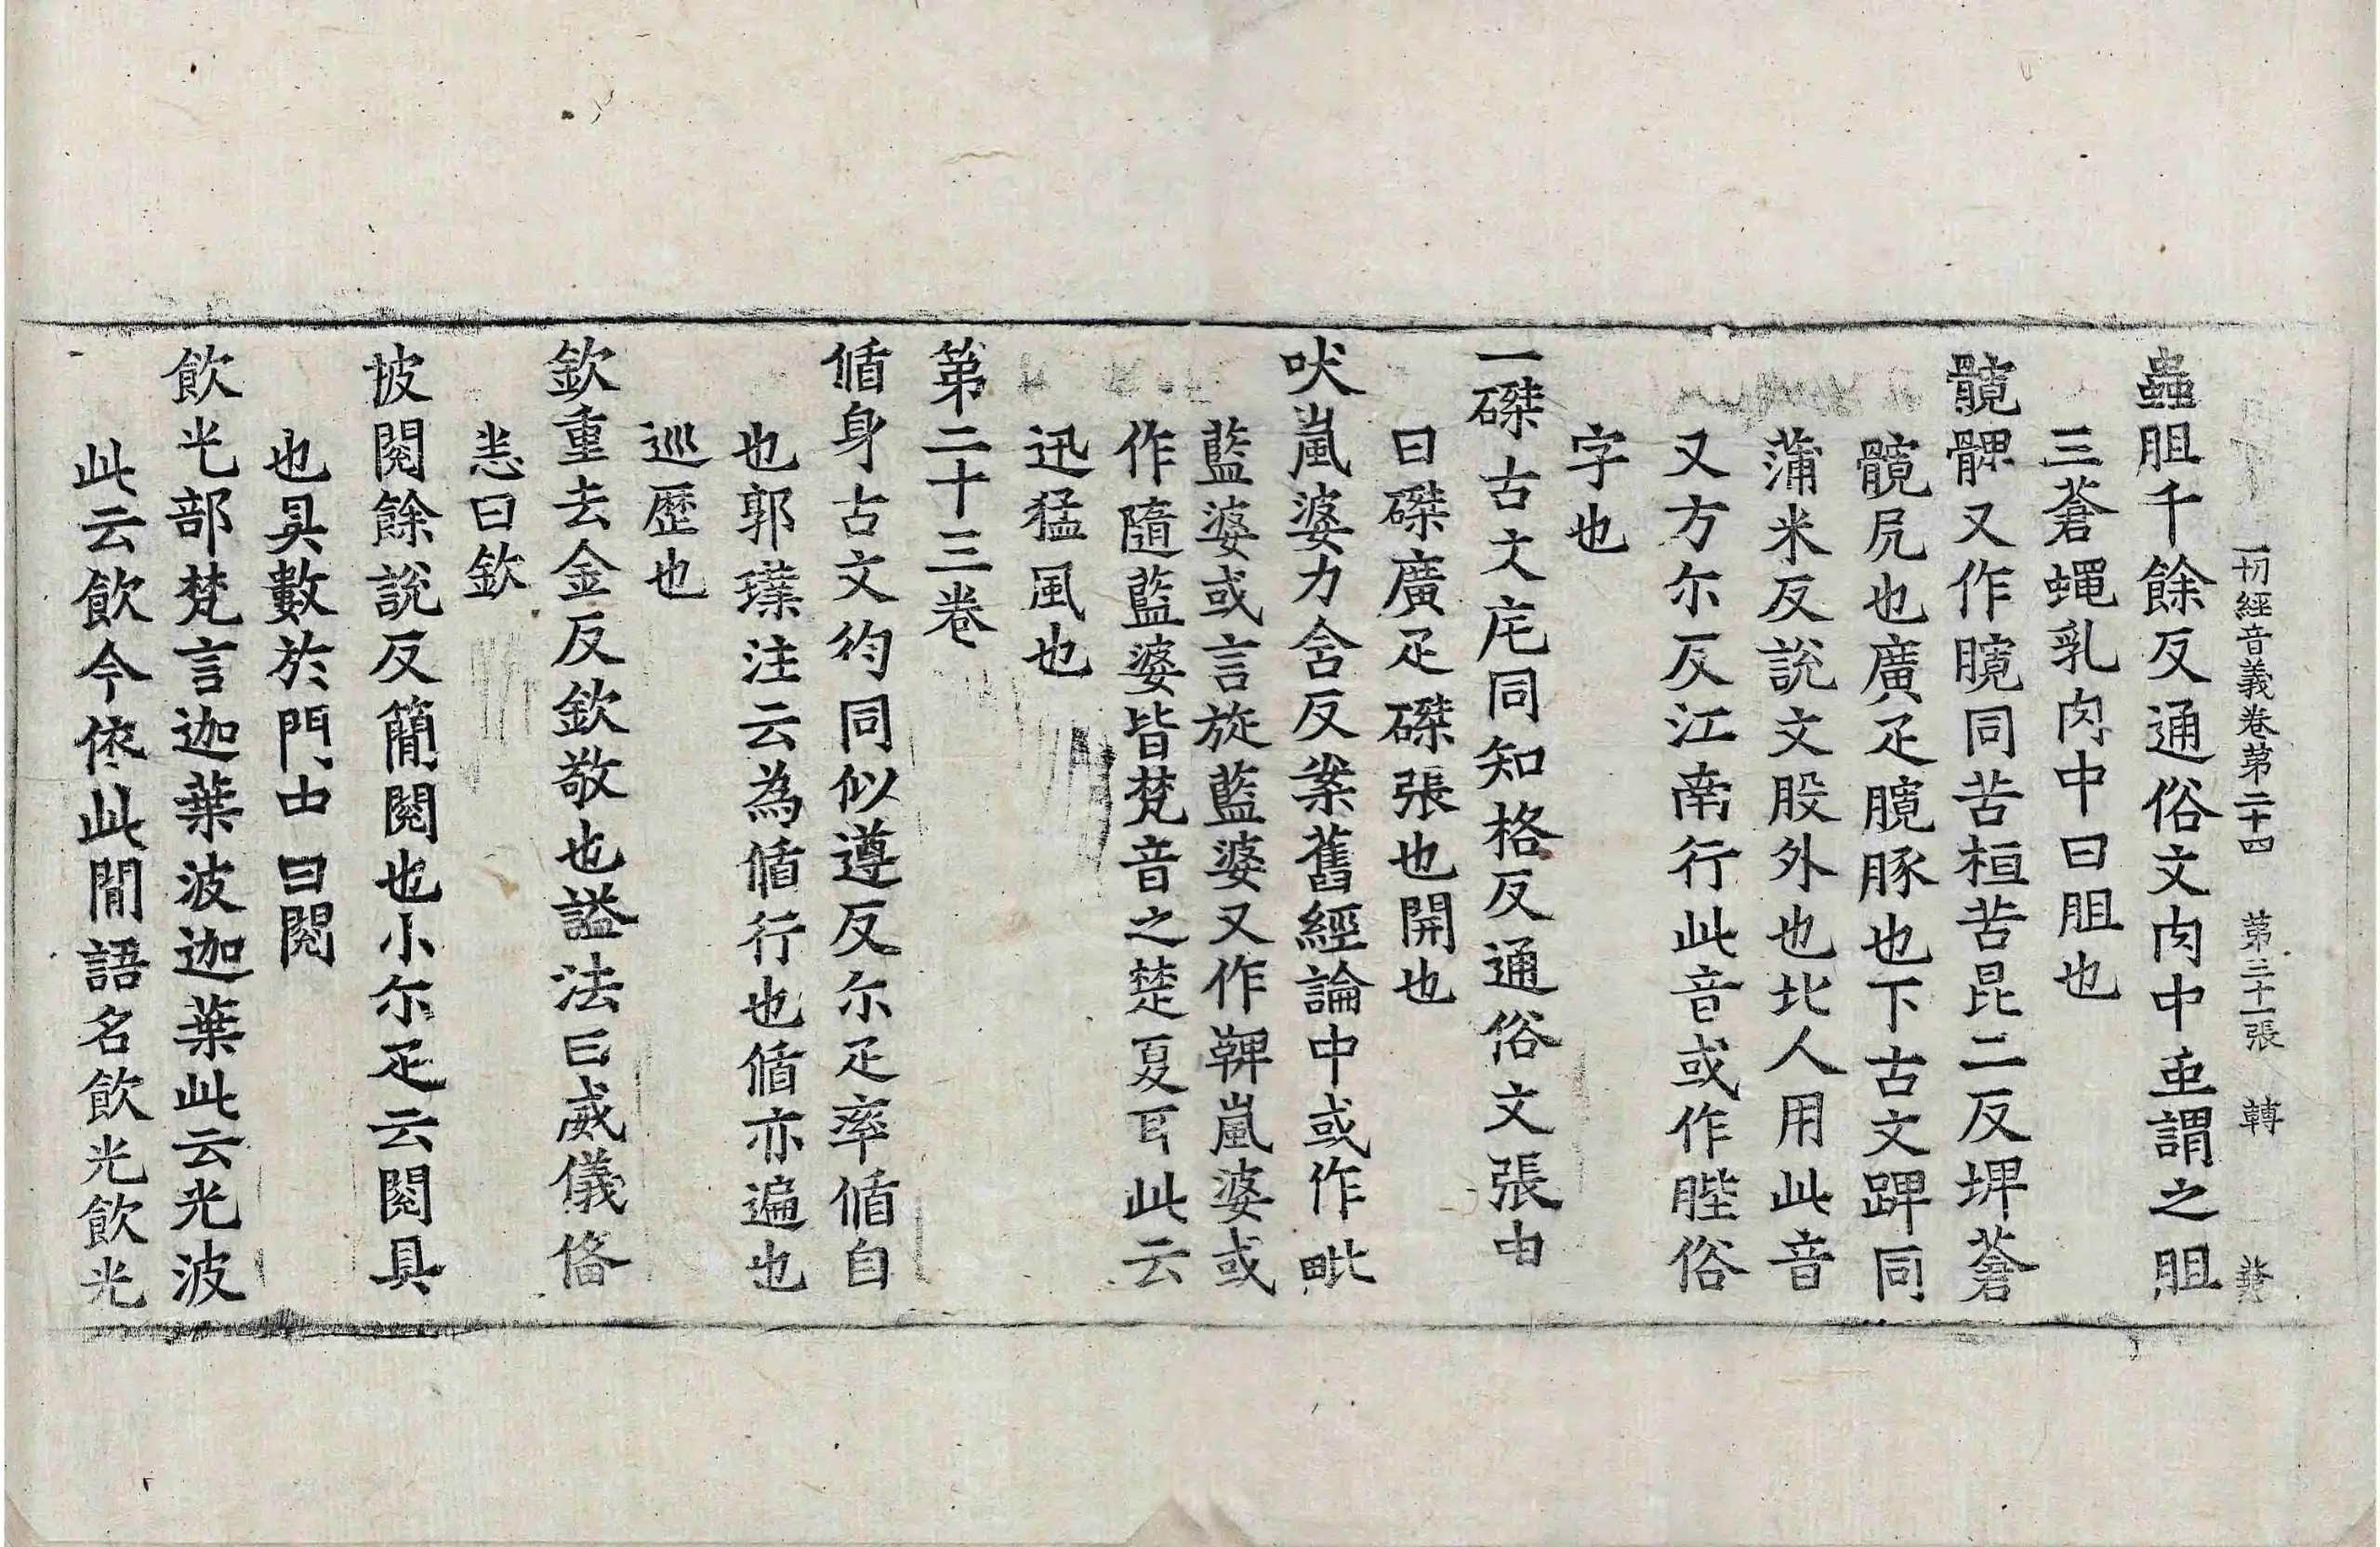 一切經音義卷第二十四 第三十一張 轉
蟲胆千餘反通俗文肉中䖝謂之胆
三蒼蠅乳肉中曰胆也
髖髁又作臗同苦桓苦昆二反埤蒼
髖尻也廣疋臗豚也下古文踔同
蒲米反說文股外也北人用此音
又方尒反江南行此音或作䏶俗
字也
一磔古文㡯同知格反通俗文張申
曰磔廣疋磔張也開也
吠嵐婆力含反案舊經論中或作毗
藍婆或言旋藍婆又作鞞嵐婆或
作隨藍婆皆梵音之楚夏耳此云
迅猛風也
第二十三卷
循身古文㣬同似遵反尒疋率循自
也郭璞注云為循行也循亦遍也
巡歷也
欽重去金反欽敬也謚法曰威儀俻
恙曰欽
披閱餘說反簡閱也小尒疋云閱具
也具數於門中曰閱
飲光部梵言迦葉波迦葉此云光波
此云飲今依此間語名飲光飲光